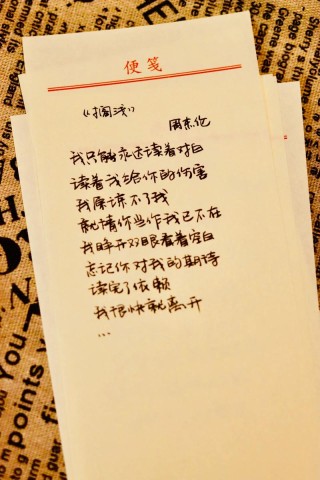 便笺
《搁浅》
周杰伦
我只能永远读着对白
读着我给你的伤害
我原谅不了我
就请你当作我已不在
我睁开双眼看着空白
忘记你对我的期待
读完了依赖
我很快就离开
...
You
points